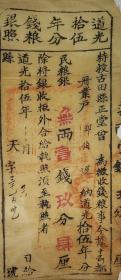 道光
拾伍
年分
錢粮
執照
特授古田縣正堂曾 為徵收錢粮事今據
冊業戶 納道光拾伍年分
民粮銀 無兩壹錢玖分肆厘
除將銀收柜外合給執照須至執照者
道光拾伍年 月 日給
縣 天字 號